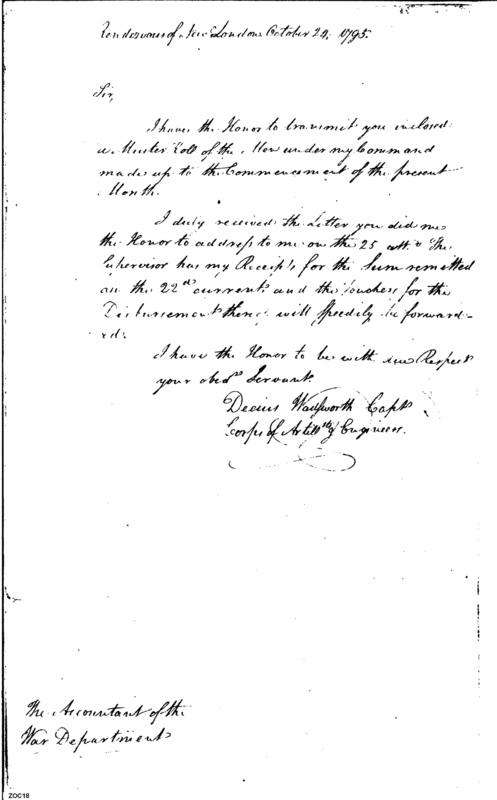 Rendezvous of New London October 24, 1795.
Sir,
I have the Honor to transmit you inclosed
a Muster Roll of the Men under my Command
made up to the Commencement of the present
Month.
I duly received the Letter you did me
the Honor to address to me on the 25 ulto. The
Supervisor has my Receipts for the Sum remitted
on the 22nd current and the Vouchers for the
Disbursement thereof will speedily be forward-
ed.
I have the Honor to be with due Respect
your obedt. Servant.
Decius Wadsworth Capt.
Corps of Artillsts & Engineers.
The Accountant of the
War Department
ZOC18